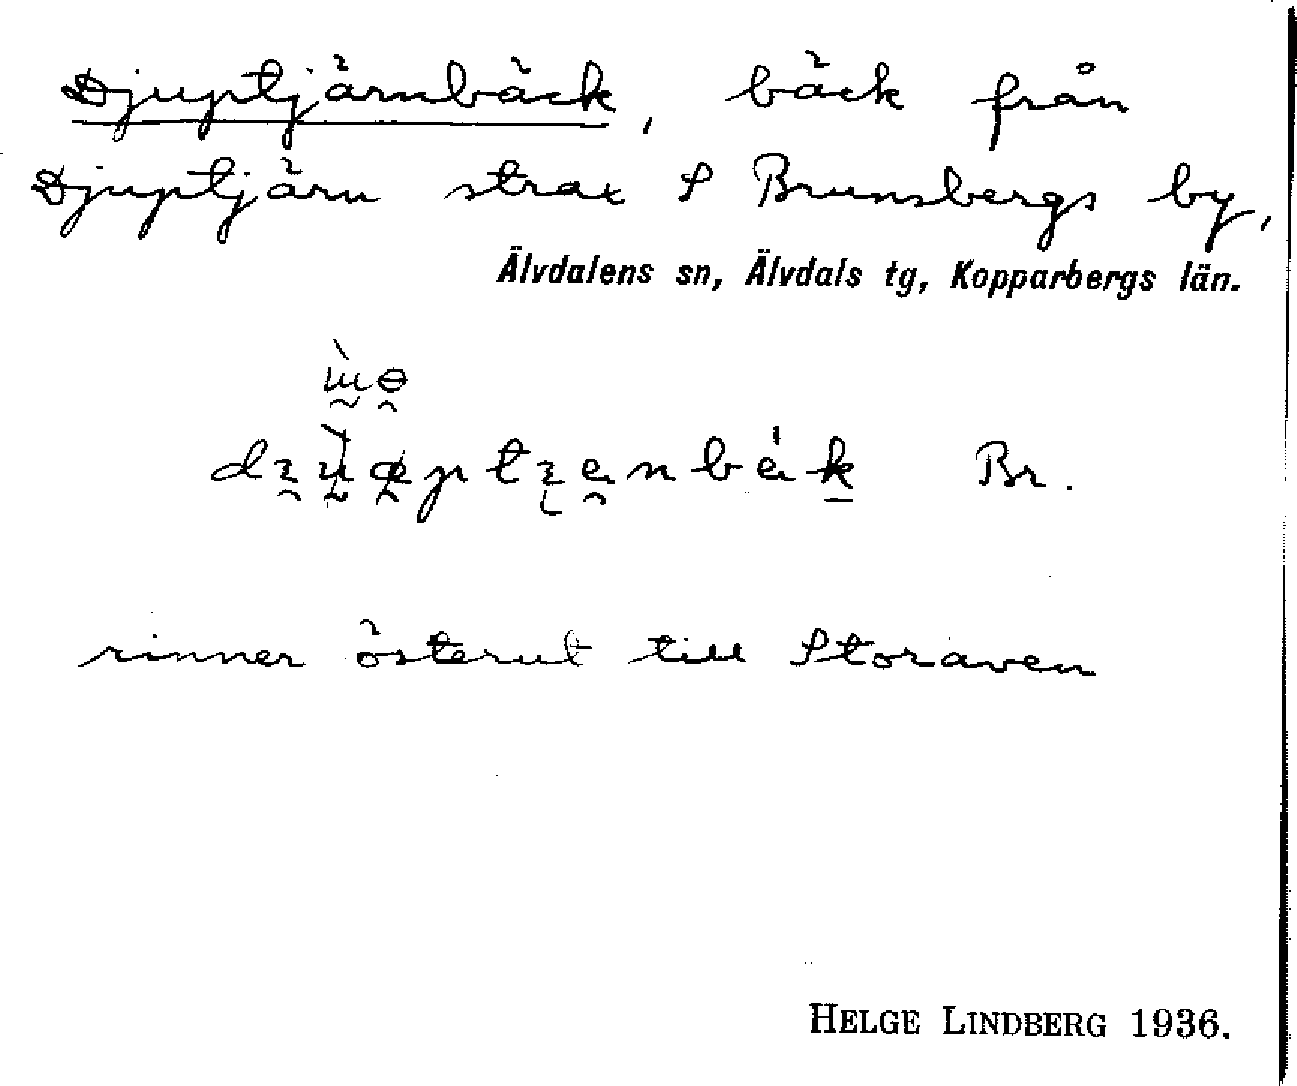 Djuptjärnbäck, bäck från
Djuptjärn strax S Brunsbergs by,
Älvdalens sn, Älvdals tg, Kopparbergs län.
Br.
rinner österut till Storaven
HELGE LINDBERG 1936.